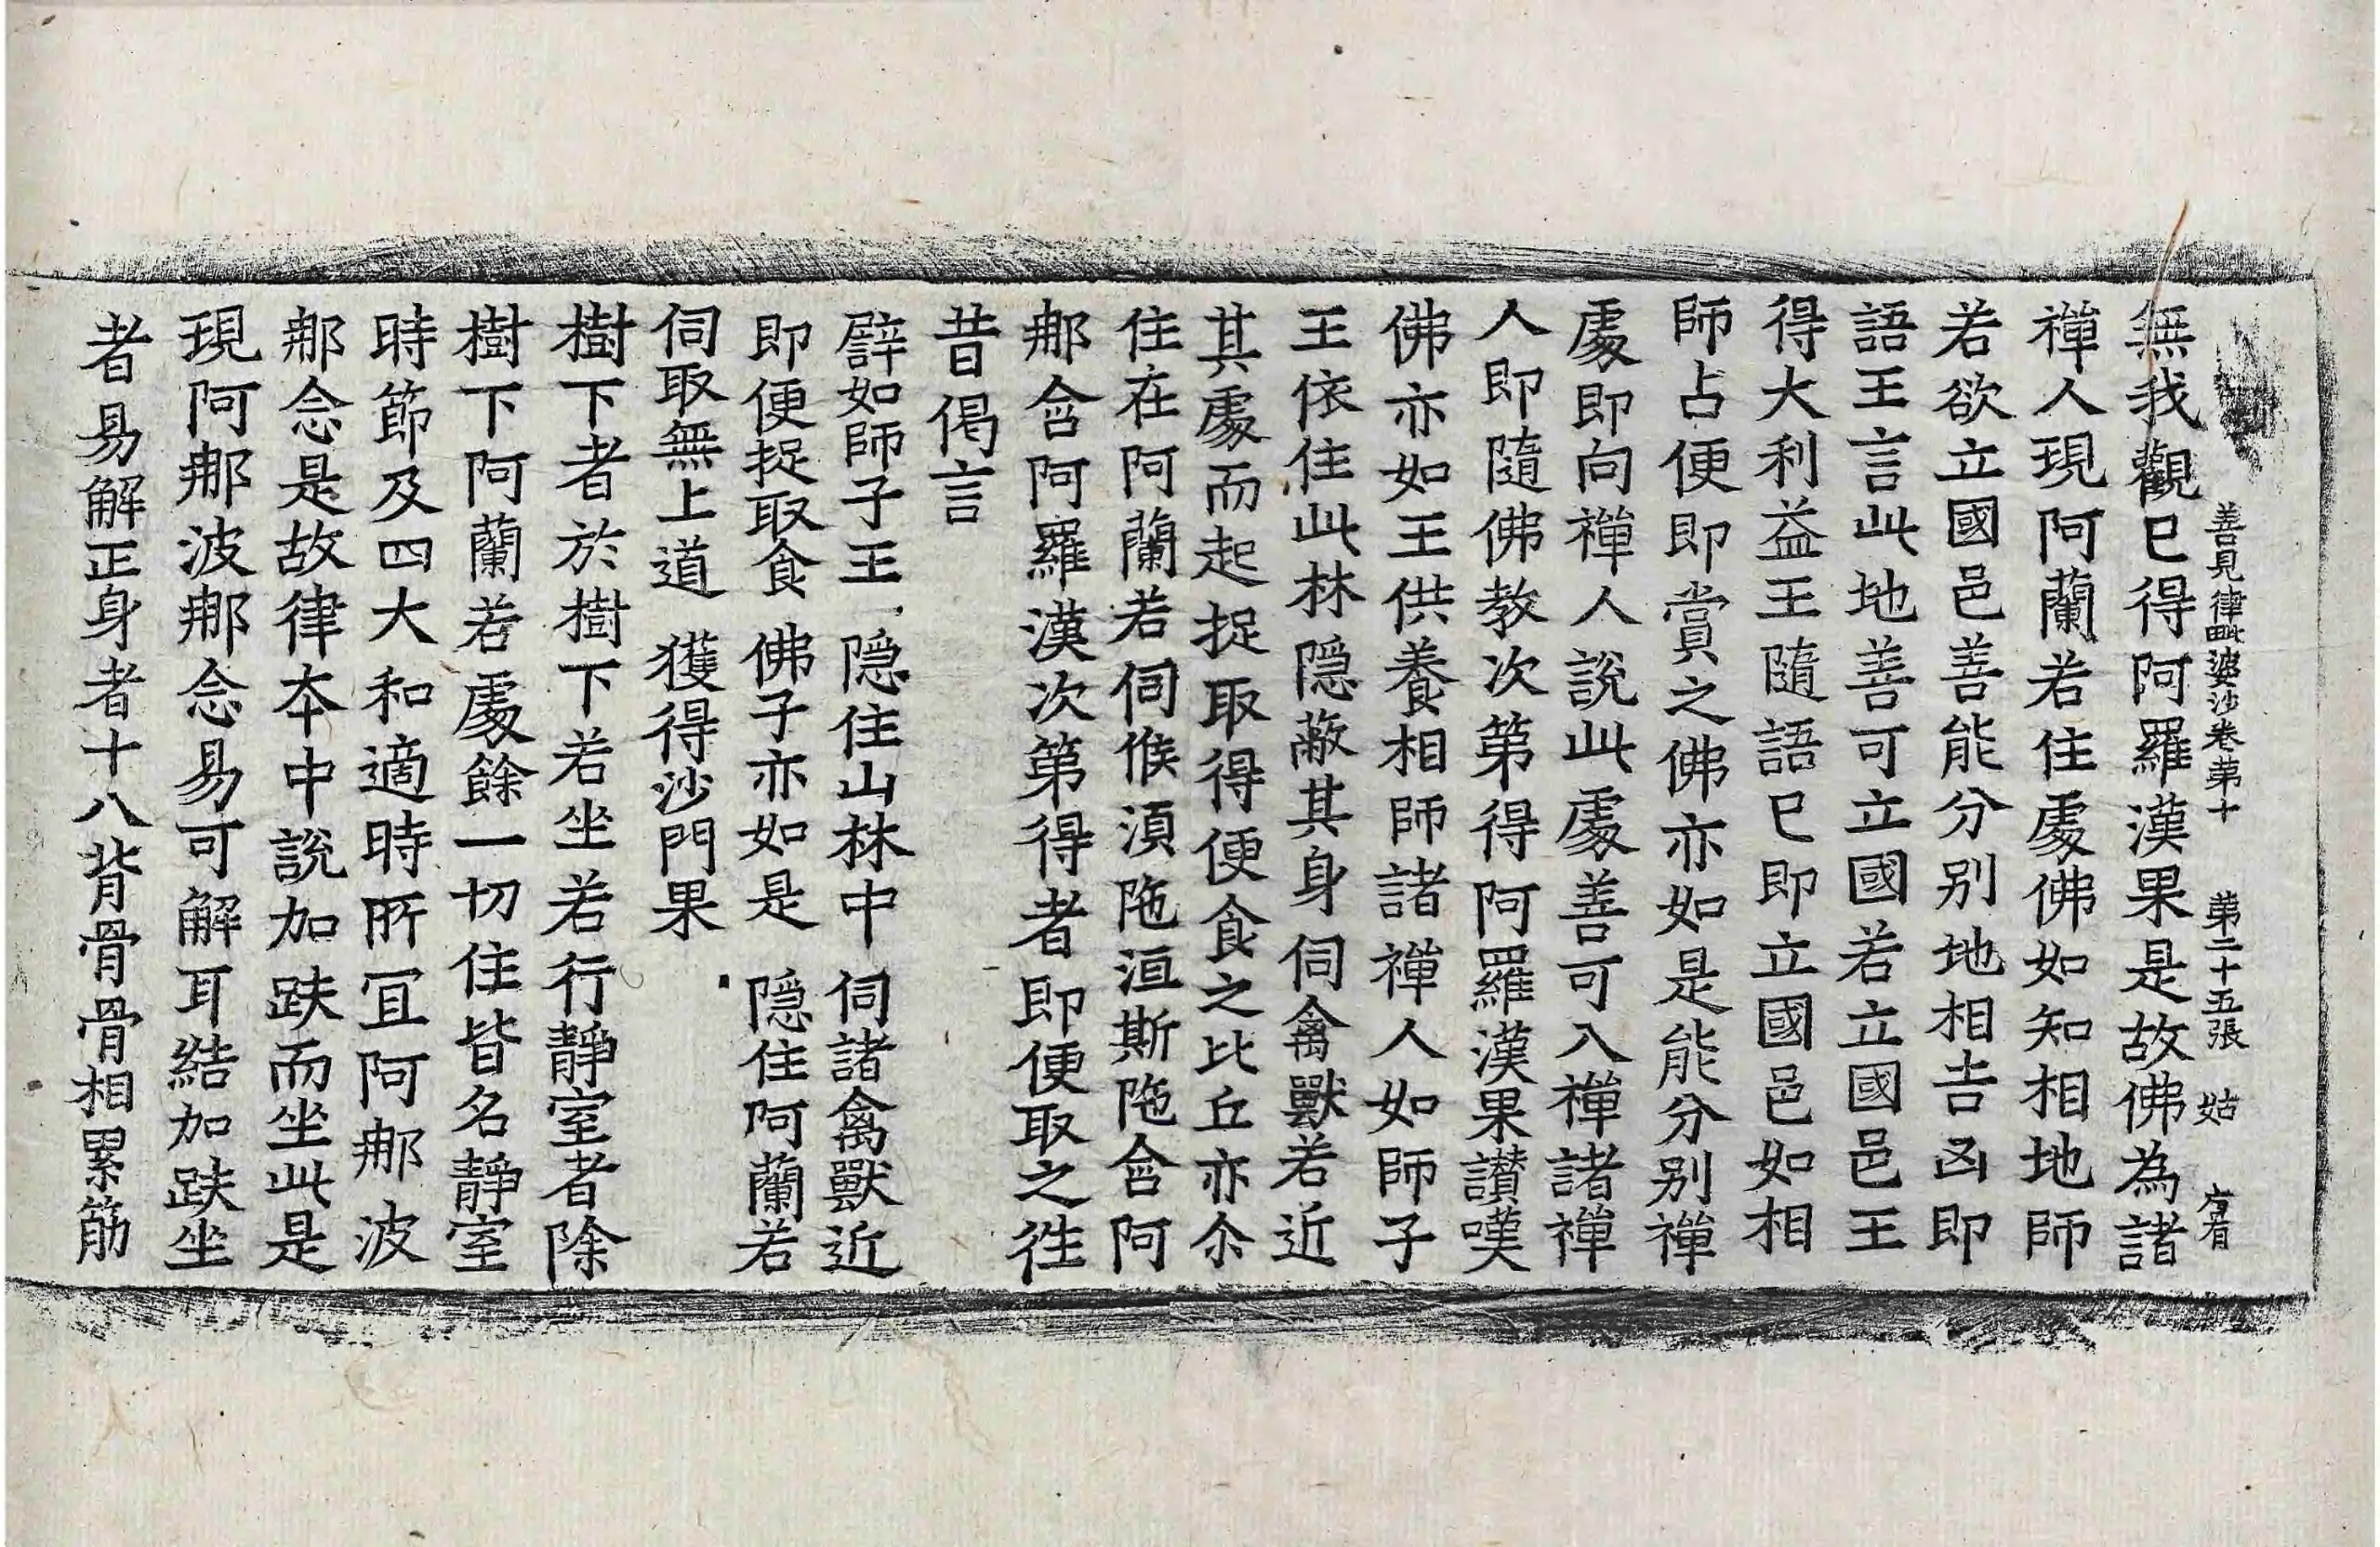 善見律毗婆沙卷第十 第二十五張 姑
無我觀已得阿羅漢果是故佛為諸
禪人現阿蘭若住處佛如知相地師
若欲立國邑善能分別地相吉凶即
語王言此地善可立國若立國邑王
得大利益王隨語已即立國邑如相
師占便即賞之佛亦如是能分別禪
處即向禪人說此處善可入禪諸禪
人即隨佛教次第得阿羅漢果讃嘆
佛亦如王供養相師諸禪人如師子
王依住此林隱蔽其身伺禽獸若近
其處而起捉取得便食之比丘亦尒
住在阿蘭若伺候湏陁洹斯陁含阿
那含阿羅漢次第得者即便取之徃
昔偈言
譬如師子王 隱住山林中 伺諸禽獸近
即便捉取食 佛子亦如是 隱住阿蘭若
伺取無上道 獲得沙門果
樹下者於樹下若坐若行靜室者除
樹下阿蘭若處餘一切住皆名靜室
時節及四大和適時所冝阿那波
那念是故律本中說加趺而坐此是
現阿那波那念易可解耳結加趺坐
者易解正身者十八背骨骨相累筋